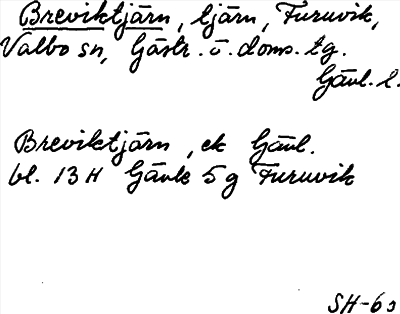 Breviktjärn, tjärn, Furuvik,
Valbo sn, Gästr. ö. doms. tg.
Gävl. l.
Breviktjärn, ek Gävl.
bl. 13 H Gävle 5 g Furuvik
SH-63